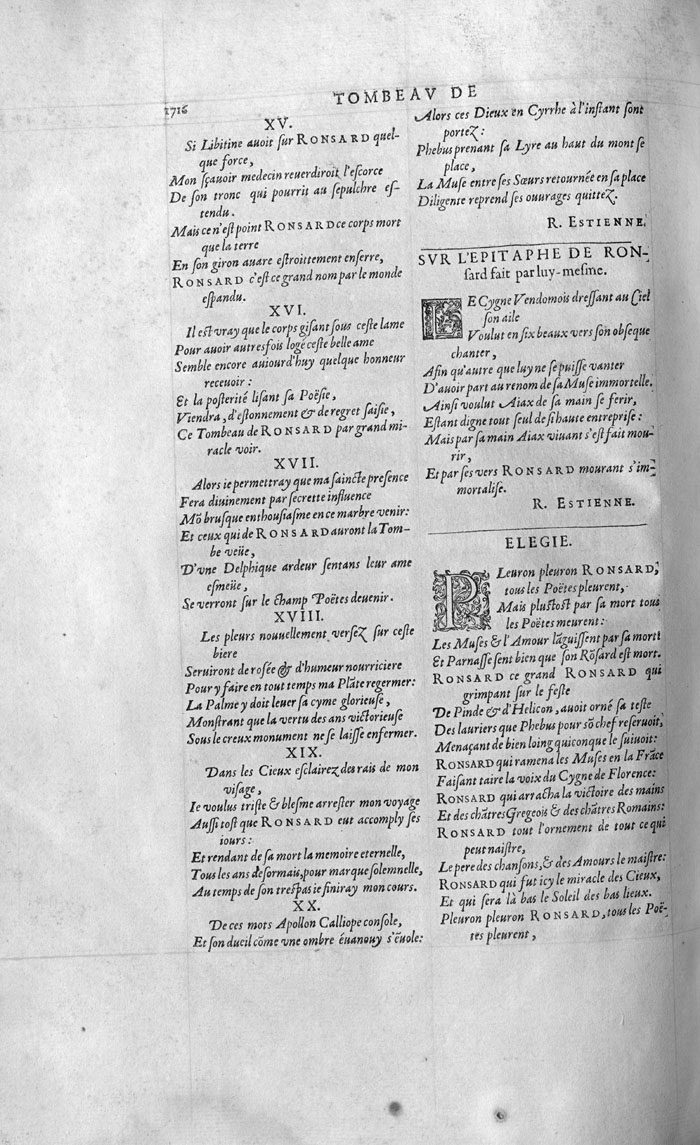 1716
TOMBEAV DE
XV.
Si Libitine avoit sur RONSARD quel-
que force,
Mon sçauoir medecin reuerdiroit l'escorce
De son tronc qui pourrit au sepulchre es-
tendu.
Mais ce n'est point RONSARD ce corps mort
que la terre
En son giron auare estroittement enserre,
RONSARD c'est ce grand nom par le monde
espandu.
XVI.
Il est vray que le corps gisant sous ceste lame
Pour auoir autresfois logé ceste belle ame
Semble encore auiourd'huy quelque honneur
receuoir:
Et la posterité lisant sa Poësie,
Viendra, d'estonnement & de regret saisie,
Ce Tombeau de RONSARD par grand mi-
racle voir.
XVII.
Alors ie permettray que ma saincte presence
Fera diuinement par secrette influence
Mõ brusque enthousiasme en ce marbre venir:
Et ceux qui de RONSARD auront la Tom-
be veüe,
D'vne Delphique ardeur sentans leur ame
esmeüe,
Se verront sur le champ Poëtes deuenir.
XVIII.
Les pleurs nouuellement versez sur ceste
biere
Seruiront de rosée & d'humeur nourriciere
Pour y faire en tout temps ma Plãte regermer:
La Palme y doit leuer sa cyme glorieuse,
Monstrant que la vertu des ans victorieuse
Sous le creux monument ne se laisse enfermer.
XIX.
Dans les Cieux esclairez des rais de mon
visage,
Ie voulus triste & blesme arrester mon voyage
Aussi tost que RONSARD eut accomply ses
iours:
Et rendant de sa mort la memoire eternelle,
Tous les ans desormais, pour marque solemnelle,
Au temps de son trespas ie finiray mon cours.
XX.
De ces mots Apollon Calliope console,
Et son dueil cõme vne ombre éuanouy s'ẽuole:
Alors ces Dieux en Cyrrhe à l'instant sont
portez:
Phebus prenant sa Lyre au haut du mont se
place,
La Muse entre ses Sœurs retournée en sa place
Diligente reprend ses ouurages quittez.
R. ESTIENNE.
SVR L'EPITAPHE DE RON-
sard fait par luy-mesme.
LE Cygne Vendomois dressant au Ciel
son aile
Voulut en six beaux vers son obseque
chanter,
Afin qu'autre que luy ne se puisse vanter
D'auoir part au renom de sa Muse immortelle.
Ainsi voulut Aiax de sa main se ferir,
Estant digne tout seul de si haute entreprise:
Mais par sa main Aiax viuant s'est fait mou-
rir,
Et par ses vers RONSARD mourant s'im-
mortalise.
R. ESTIENNE.
ELEGIE.
PLeuron pleuron RONSARD,
tous les Poëtes pleurent,
Mais plustost par sa mort tous
les Poëtes meurent:
Les Muses & l'Amour lãguissent par sa mort
Et Parnasse sent bien que son Rõsard est mort.
RONSARD ce grand RONSARD qui
grimpant sur le feste
De Pinde & d'Helicon, auoit orné sa teste
Des lauriers que Phebus pour sõ chef reseruoit,
Menaçant de bien loing quiconque le suiuoit:
RONSARD qui ramena les Muses en la Frãce
Faisant taire la voix du Cygne de Florence:
RONSARD qui arracha la victoire des mains
Et des chãtres Gregeois & des chãtres Romains:
RONSARD tout l'ornement de tout ce qui
peut naistre,
Le pere des chansons, & des Amours le maistre:
RONSARD qui fut icy le miracle des Cieux,
Et qui sera là bas le Soleil des bas lieux.
Pleuron pleuron RONSARD, tous les Poë-
tes pleurent,